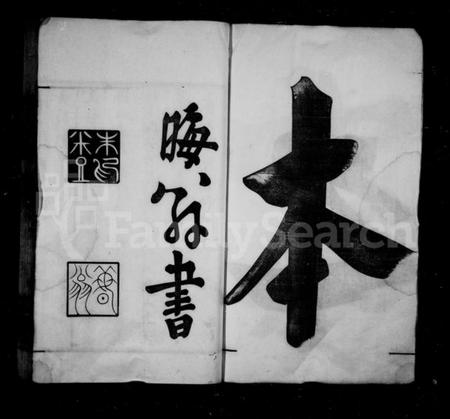 本
晦翁書
FamilySearch